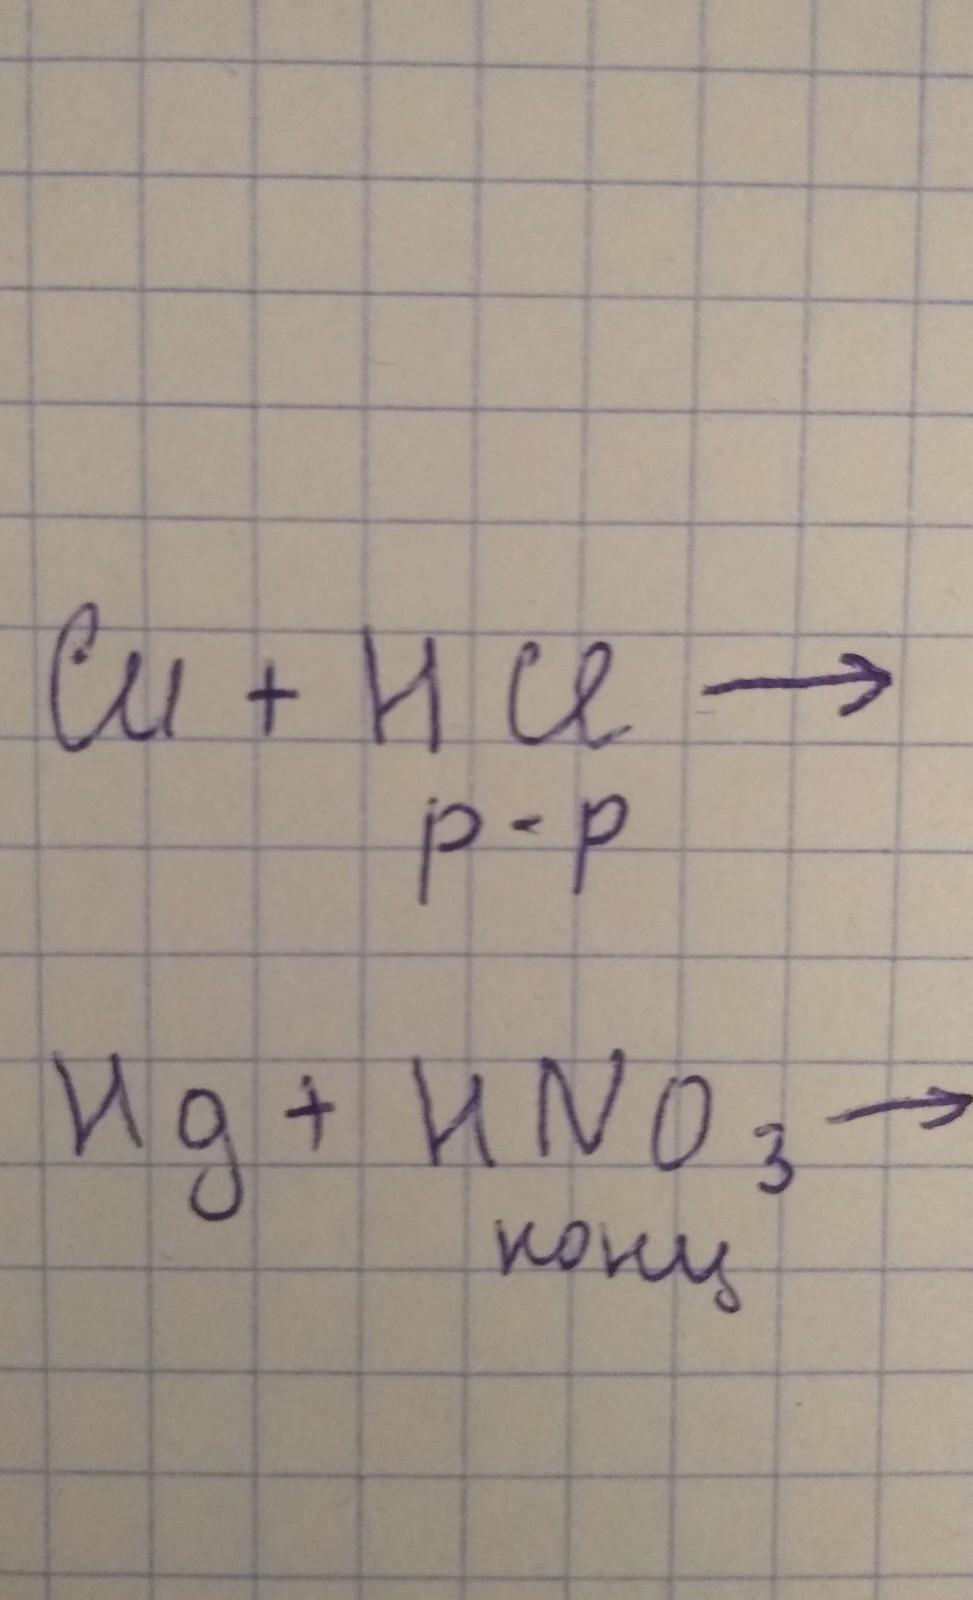 Cu + HCl →
р-р
Hg + HNO₃ →
конц